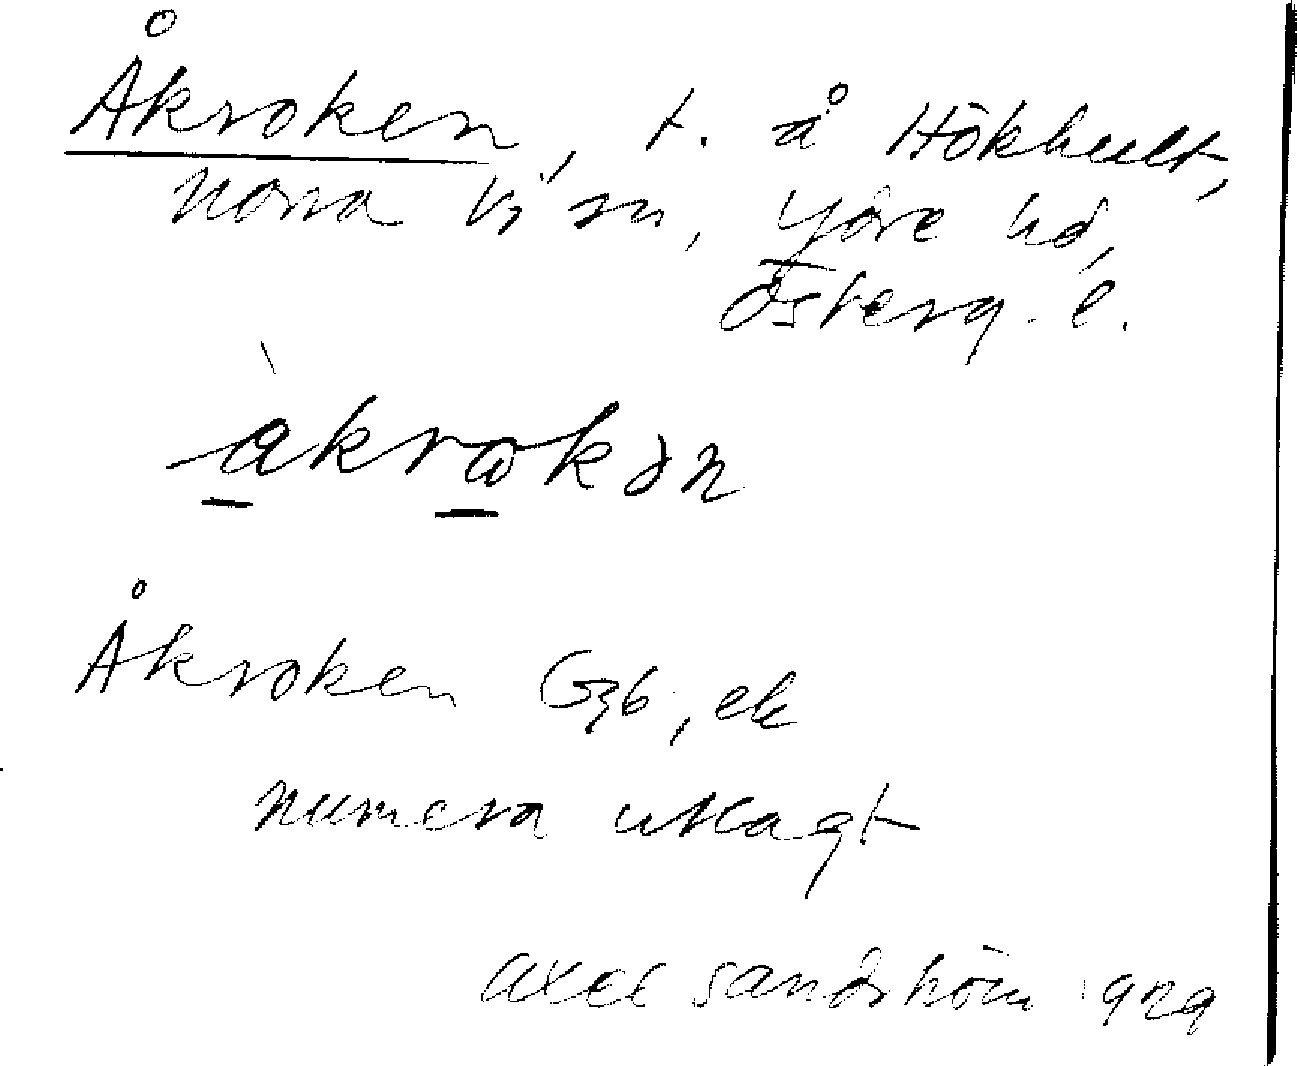 Åkroken, t. å Hökhult,
Norra Vi sn, Ydre hd,
Österg. l.
åkrokən
Åkroken G36, ek
numera utlagt
Axel Sandström 1929